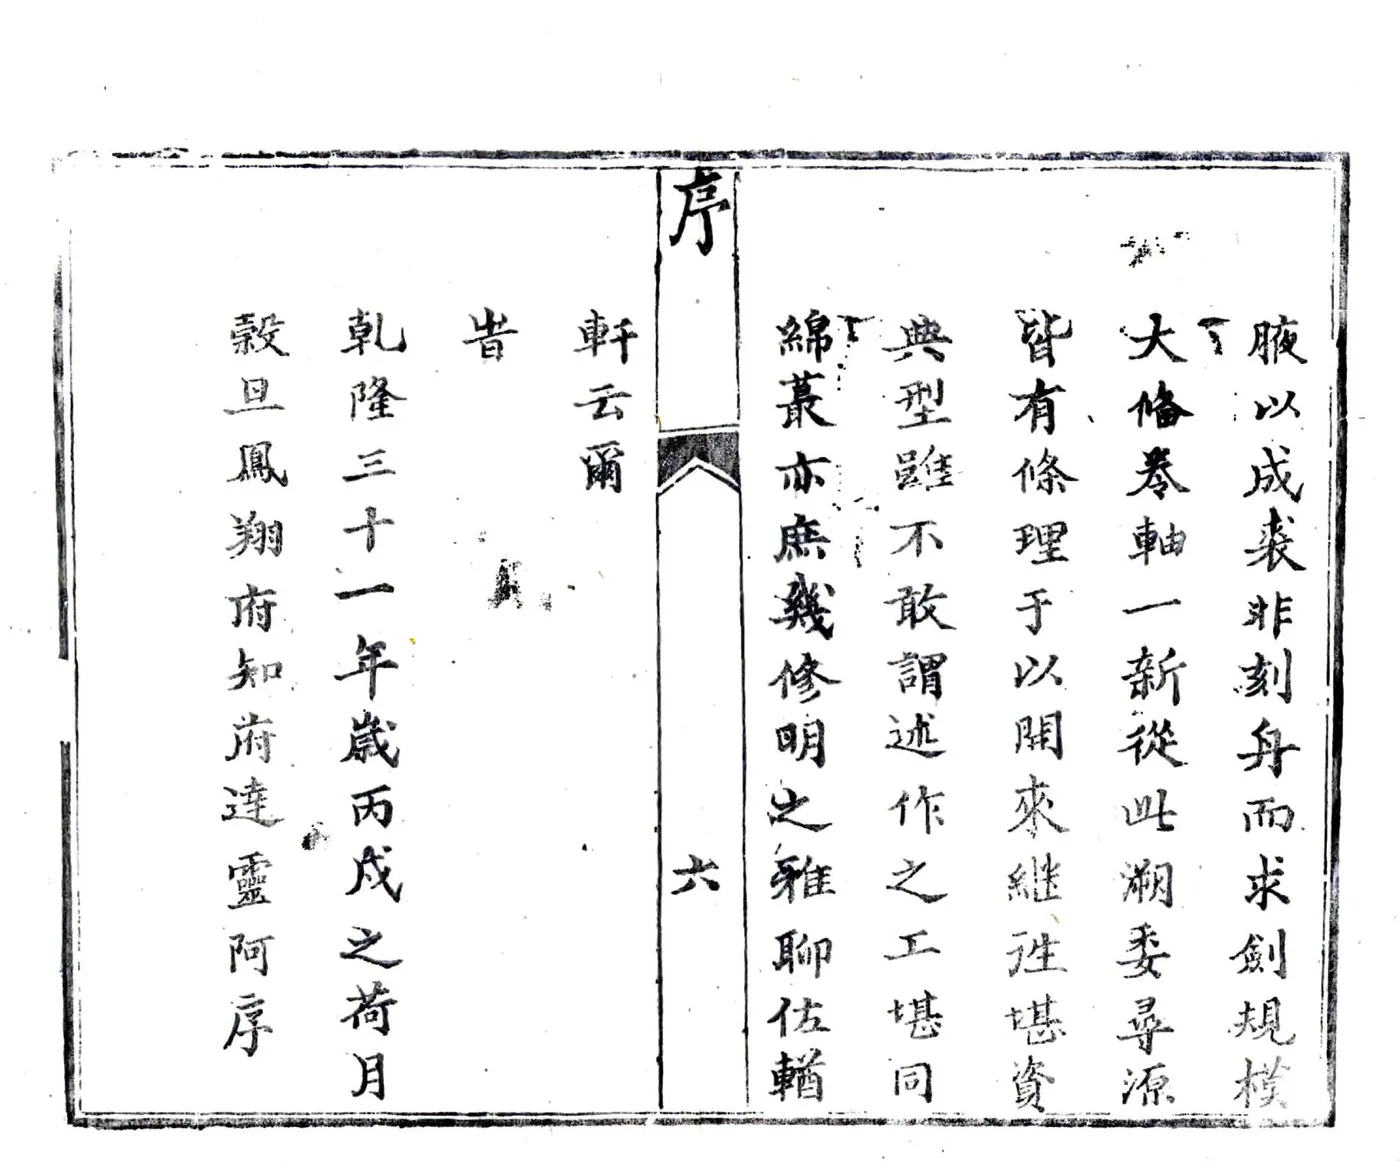 腋以成裘非刻舟而求劍規模
大俻卷軸一新從此溯委尋源
皆有條理于以開來継徃堪資
典型雖不敢謂述作之工堪同
綿蕞亦庶幾修明之雅聊佐輶
序
六
軒云爾
旹
乹隆三十一年嵗丙戌之荷月
榖旦鳳翔府知府達靈阿序